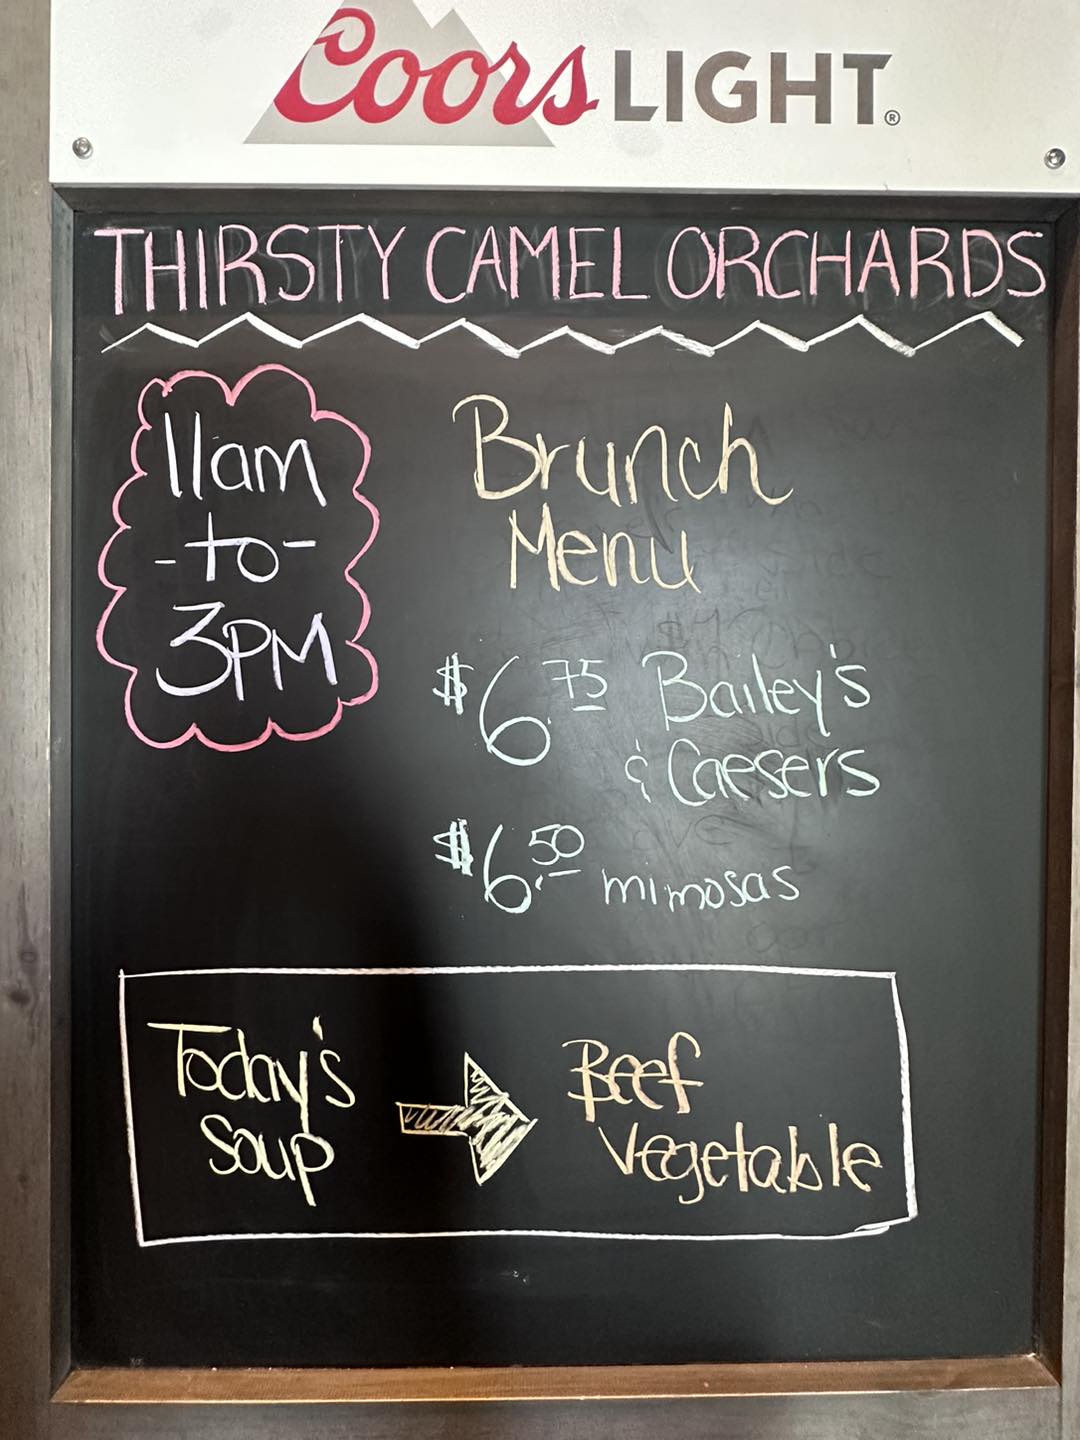 Coors LIGHT®
THIRSTY CAMEL ORCHARDS
11am
-to-
3PM
Brunch
Menu
$6.75 Bailey's
& Caesers
$6.50 mimosas
Today's
Soup
Beef
Vegetable